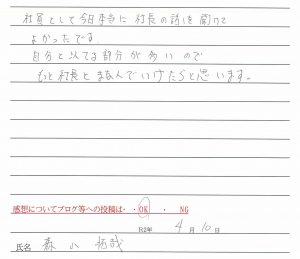 社員として今日本当に 社長の話を聞けて
よかったです
自分と似てる部分が多いので
もっと社長とまなんでいけたらと思います。
感想についてブログ等への投稿は・・OK ・ NG
R2年 4月 10日
氏名 森